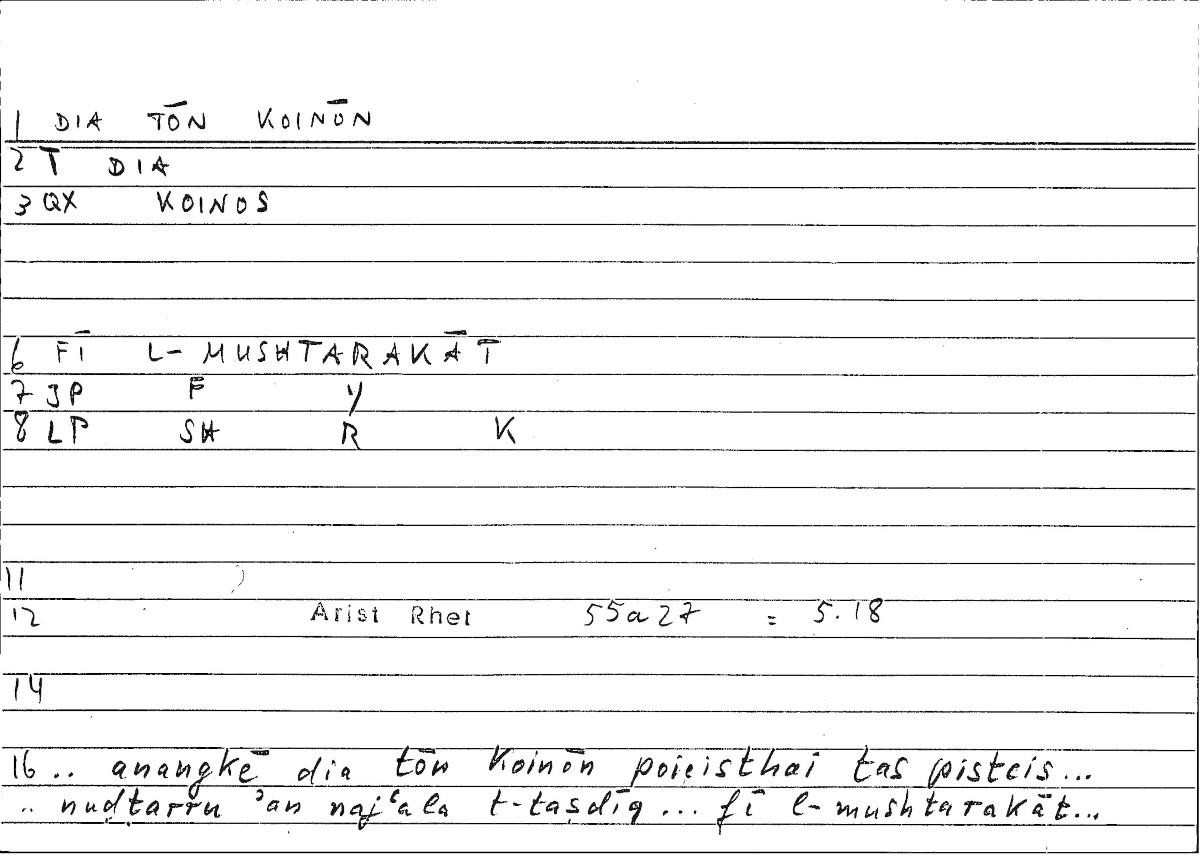 1 DIA TŌN KOINŌN
2 T DIA
3 QX KOINOS
6 FĪ L-MUSHTARAKĀT
7 JP F Y
8 LP SH R K
11
12 Arist Rhet 55a27 = 5.18
14
16 .. anangkē dia tōn koinōn poieisthai tas pisteis...
.. nuḍṭarru ʾan najʿala t-taṣdīq ... fī l-mushtarakāt...